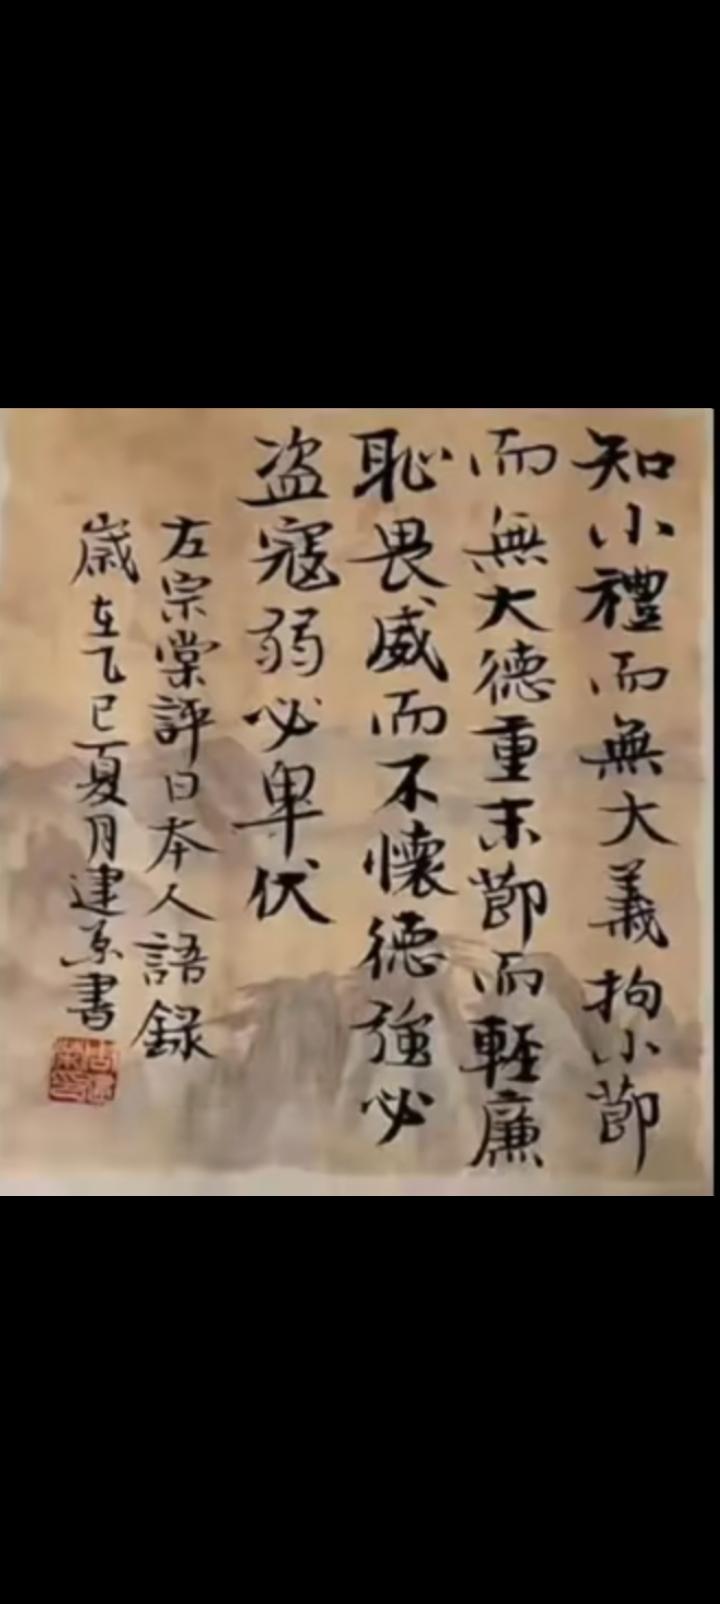 知小禮而無大義拘小節
而無大德重末節而輕廉
恥畏威而不懷德強必
盗寇弱必卑伏
左宗棠評日本人語録
歲在乙巳夏月建書